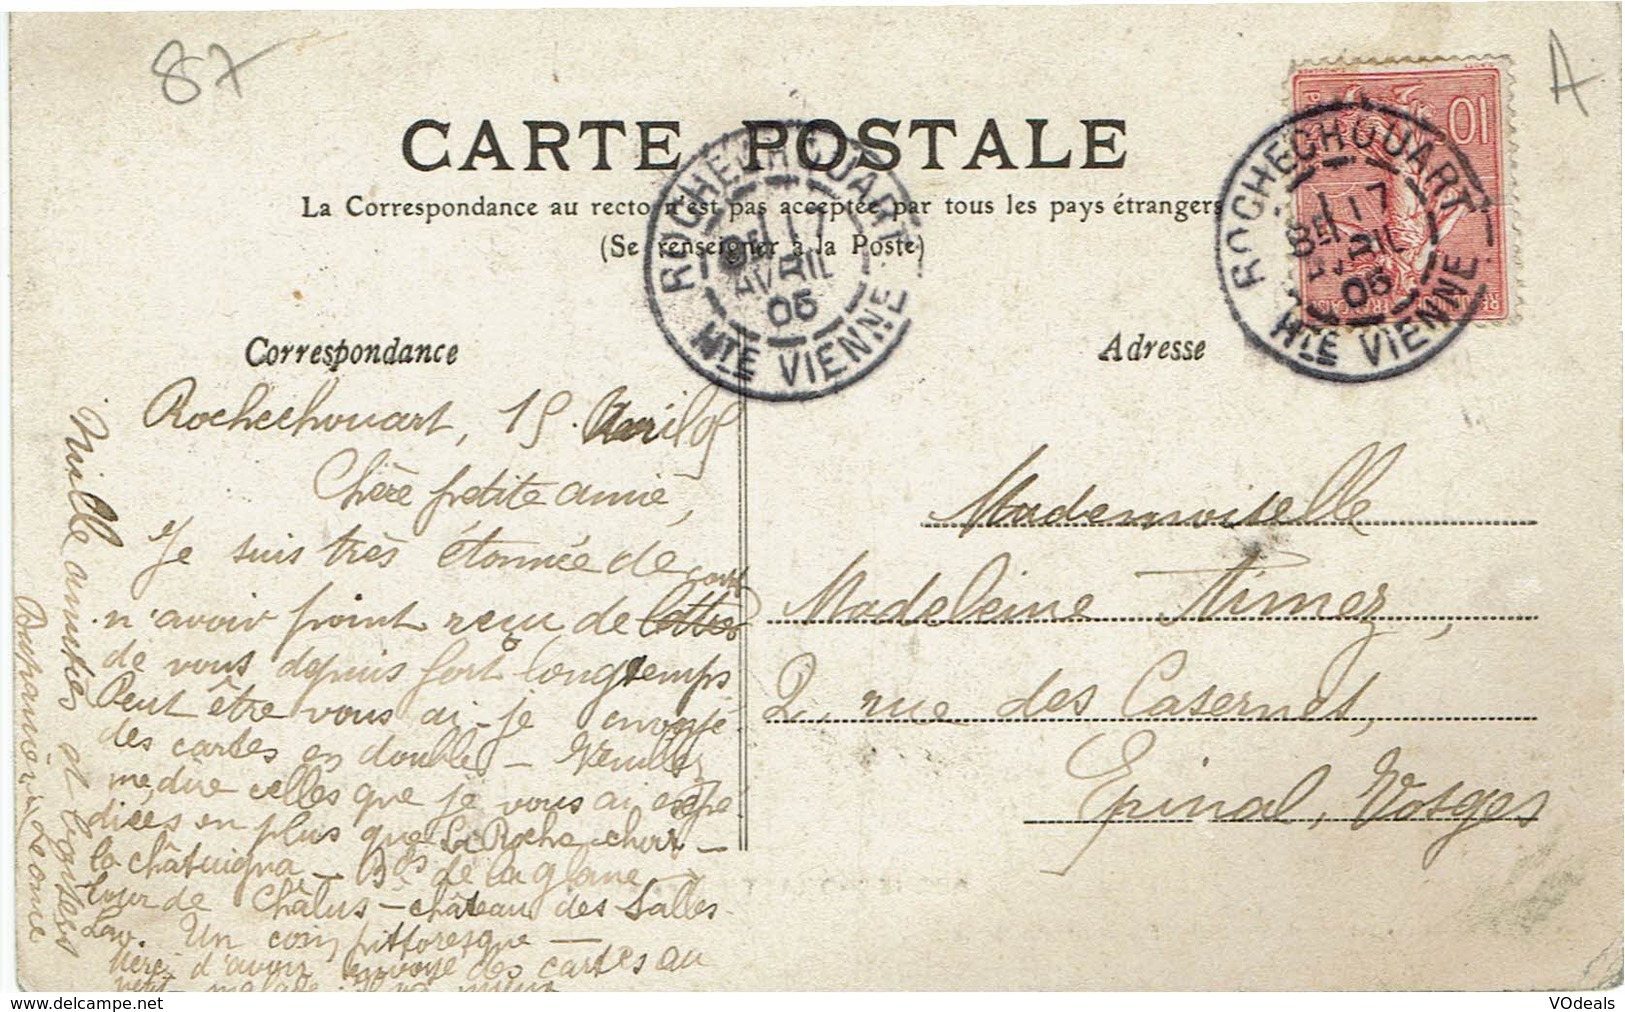 87
A
CARTE POSTALE
La Correspondance au recto n'est pas acceptée par tous les pays étrangers
(Se renseigner à la Poste)
ROCHECHOUART
8E 17
AVRIL
05
HTE VIENNE
10
ROCHECHOUART
8E 17
AVRIL
05
HTE VIENNE
Correspondance
Adresse
Rochechouart, 15 Avril 05
Chère petite amie,
Je suis très étonnée de
n'avoir point reçu de lettres
de vous depuis fort longtemps
Peut être vous ai-je envoyé
des cartes en double – Veuillez
me dire celles que je vous ai expé
diées en plus que La Roche chou –
la châtaigna – de la glane –
tour de Châlus – château des Salles
Lav. Un coin pittoresque –
Merci d'avoir envoyé des cartes au
petit malade. Il va mieux
Mille amitiés et
Léonie
Mademoiselle
Madeleine Aimez,
2, rue des Casernes,
Epinal, Vosges
VOdeals
www.delcampe.net